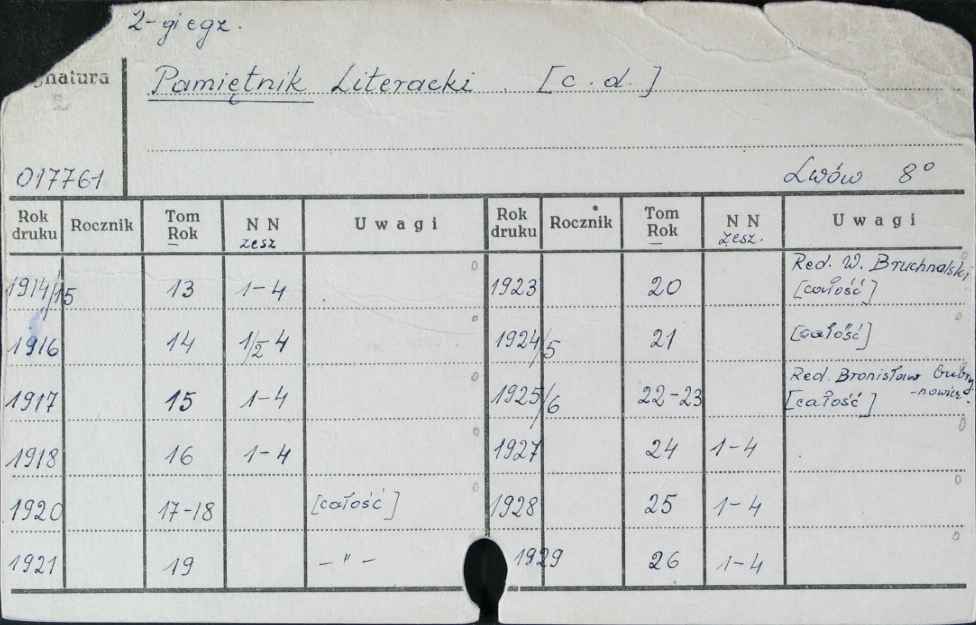 2-gi egz.
Pamiętnik Literacki [c. d.]
017761
Lwów 8°
Rok druku Rocznik Tom Rok N N zesz Uwagi Rok druku Rocznik Tom Rok N N zesz. Uwagi
1914/15 13 1-4 1923 20 Red. W. Bruchnalski [całość]
1916 14 1/2 4 1924/5 21 [całość]
1917 15 1-4 1925/6 22-23 Red. Bronisław Gubrynowicz [całość]
1918 16 1-4 1927 24 1-4
1920 17-18 [całość] 1928 25 1-4
1921 19 - " - 1929 26 1-4